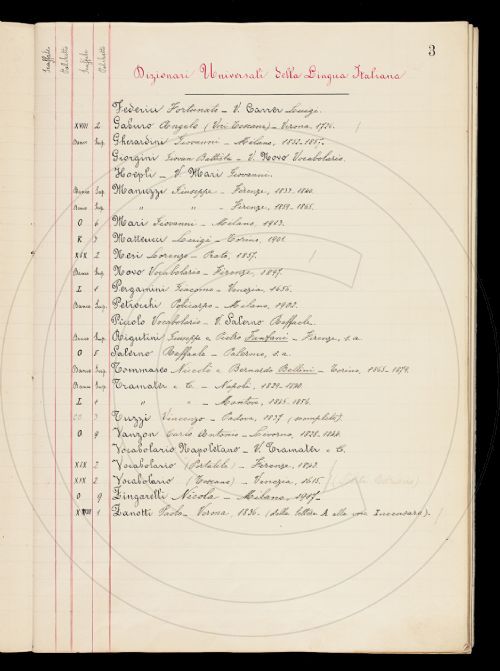 3
Scaffale Palchetto Scaffale Palchetto
Dizionari Universali della Lingua Italiana
Federici Fortunato – V. Carrer Luigi.
XVIII 2 Gaburo Angelo (Voci Toscane) – Verona,
Banco Sup. Gherardini Giovanni – Milano,
Giorgini Giovan Battista – V. Novo Vocabolario.
Hoepli – V. Mari Giovanni.
Sup. Manuzzi Giuseppe – Firenze, 1833-1840.
Banco Sup. " " – Firenze, 1859-1865.
O 6 Mari Giovanni – Milano, 1913.
K 3 Matteucci Luigi – Torino, 1901
XIX 2 Neri Lorenzo – Prato, 1857.
Banco Sup. Novo Vocabolario – Firenze, 1897.
I 1 Pergamini Giacomo – Venezia, 1656.
Banco Sup. Petrocchi Policarpo – Milano, 1902.
Piccolo Vocabolario – V. Salerno Raffaele.
Banco Sup. Rigutini Giuseppe e Pietro Fanfani – Firenze, s. a.
O 5 Salerno Raffaele – Palermo, s. a.
Banco Sup. Tommaseo Nicolò e Bernardo Bellini – Torino, 1865-1879.
Banco Sup. Tramater e C. – Napoli, 1829-1840.
I " " – Mantova, 1845-1856.
3 Tuzzi Vincenzo – Padova, 1837 (incompleto).
O 9 Vanzon Carlo Antonio – Livorno, 1828-1844.
Vocabolario Napoletano – V. Tramater e C.
XIX 2 Vocabolario (Portatile) – Firenze,
XIX 2 Vocabolario (Toscano) – Venezia, 1615.
O 9 Zingarelli Nicola – Milano, 1917.
1 Zanotti Paolo – Verona, 1836. (dalla lettera A alla voce Incensare).